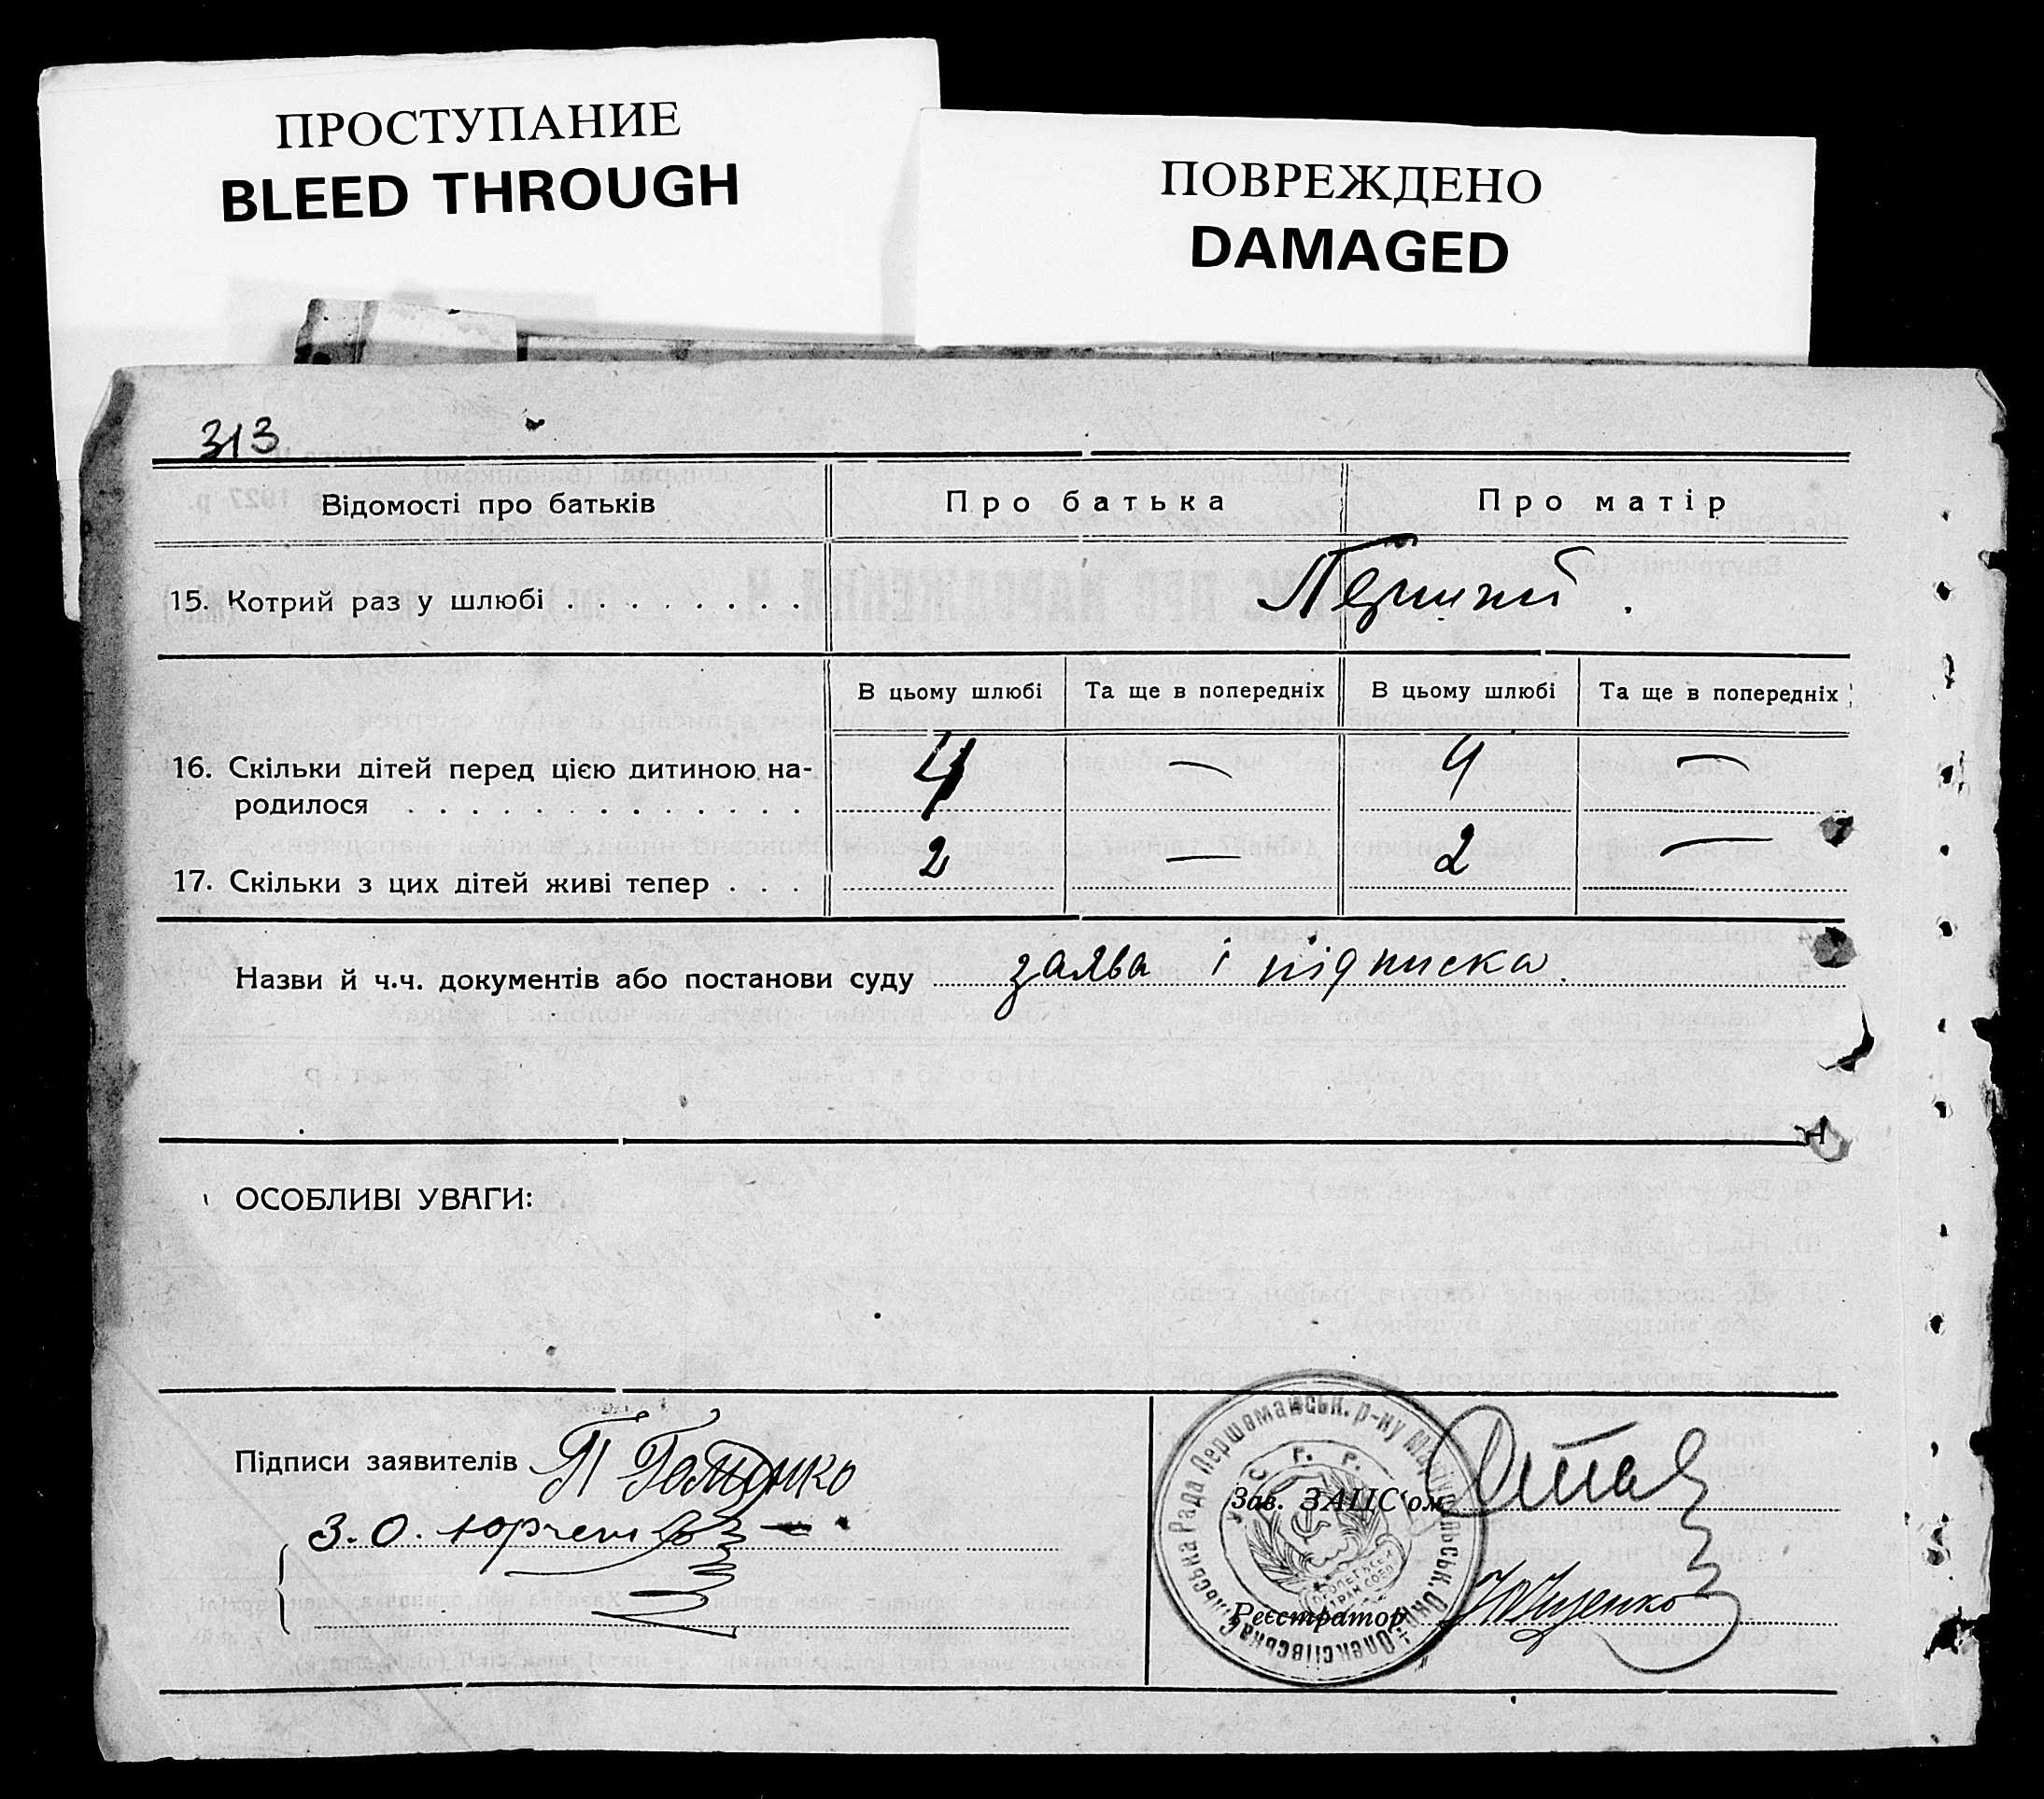 ПРОСТУПАНИЕ
BLEED THROUGH
ПОВРЕЖДЕНО
DAMAGED
313
Відомості про батьків
Про батька
Про матір
15. Котрий раз у шлюбі . . . . . . . .
Перший.
В цьому шлюбі
Та ще в попередніх
В цьому шлюбі
Та ще в попередніх
16. Скільки дітей перед цією дитиною на-
родилося . . . . . . . . . . . . .
4 — 4 —
17. Скільки з цих дітей живі тепер . . .
2 — 2 —
Назви й ч.ч. документів або постанови суду заява і підписка.
ОСОБЛИВІ УВАГИ:
Підписи заявителів П
З. О.
Зав. ЗАЦС'ом
Реєстратор
Олексіївська Сільська Рада Першомайськ. р-ну Маріупольськ. Окр.
У. С. Р. Р.